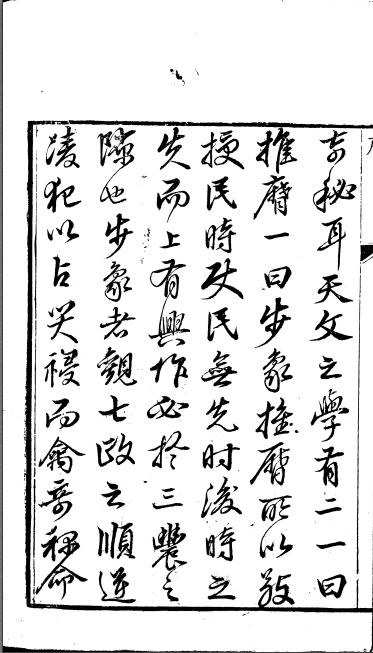 奇秘耳天文之學有二一曰
推曆一曰步象推曆所以敬
授民時使民無先时後時之
失而上有興作必於三農之
隙也步象者觀七政之順逆
凌犯以占災祲而禽奇祿命